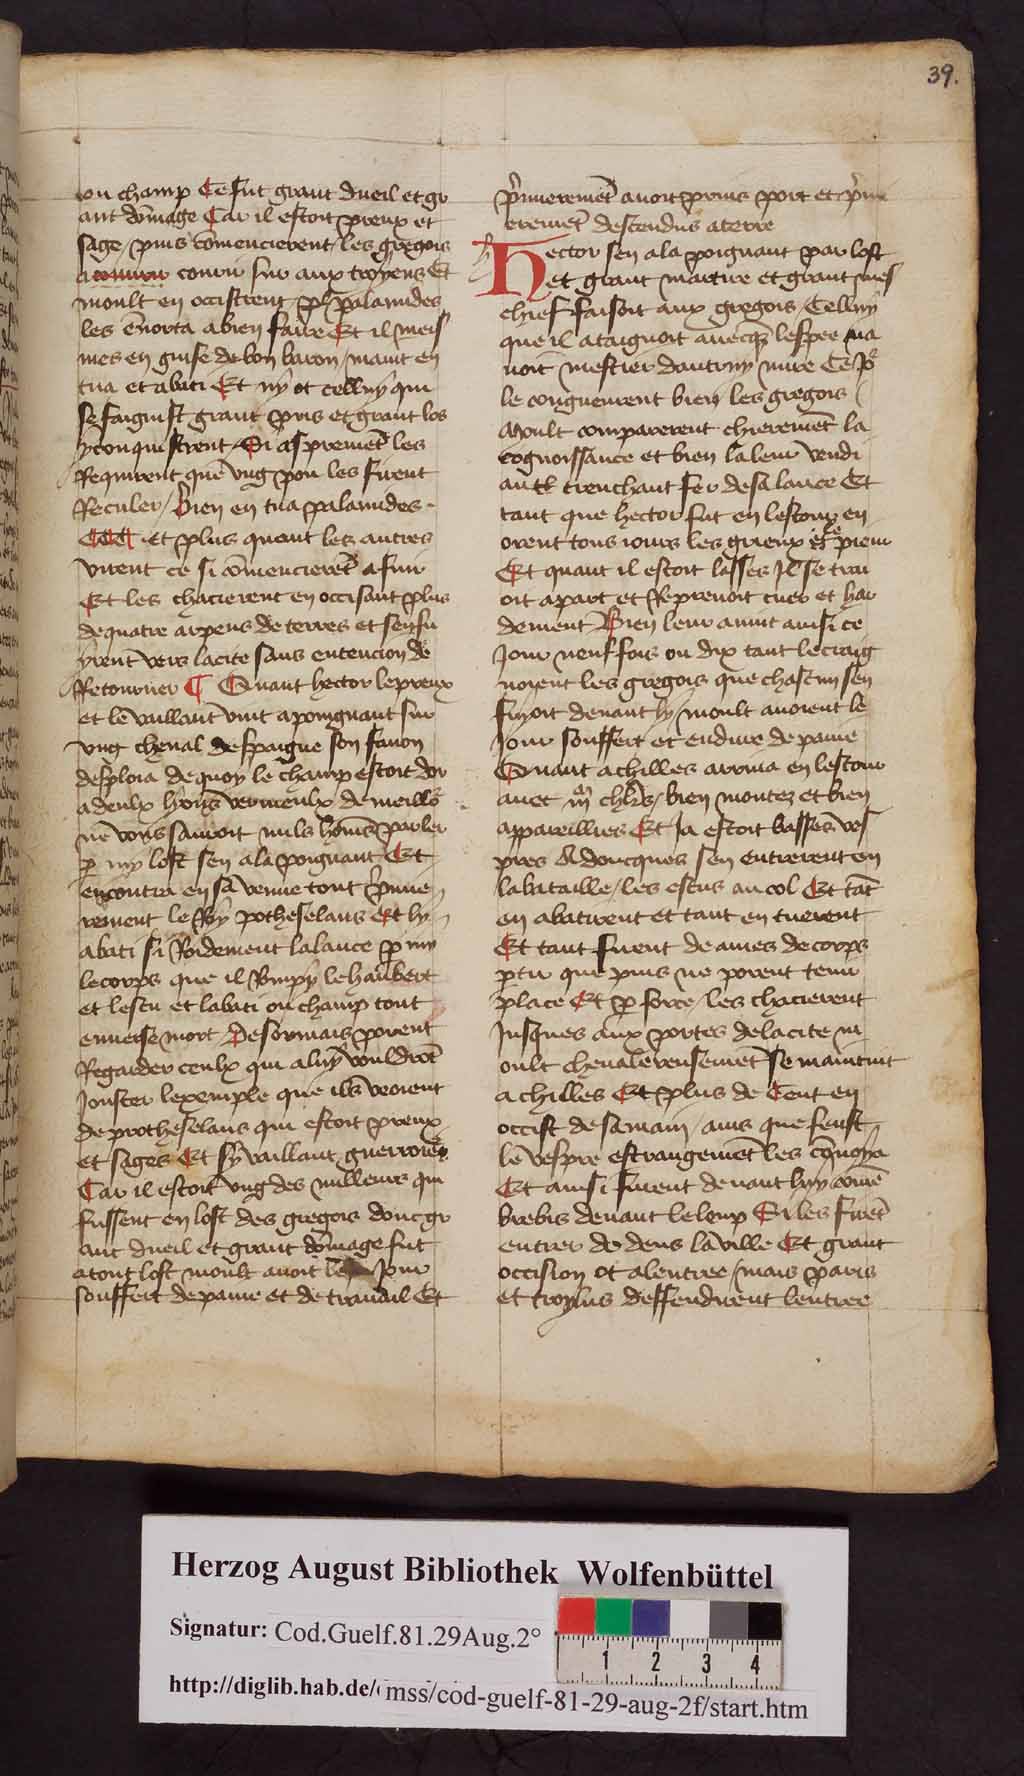 39.
ou champ Ce fut grant dueil et gr
ant dōmage Car il estoit preux et
sage / puis cōmencierent / les gregois
a courir sur aux troyens Et
moult en occistrent / palamides
les ēnorta a bien faire Et il meis
mes en guise de bon baron / maint en
tua et abati Et ny ot celluy qui
se faignist grant pris et grant los
y conquistrent / Si asprement les
Requirent que ung pou les firent
Reculer / Bien en tua palamides .
et plus quant lez autres
virent ce si cōmencierēt a fuir
Et les chacierent en occisant plus
de quatre arpens de terres et senfu
yrent vers la cite sans entencion de
Retourner ¶ Quant hector le preux
et le vaillant vint apoingnant sur
ung cheual despaigne son fanon
desploia de quoy le champ estoit dor
a deulx lyons vermeulx de meillo
ne vous sauroit nuls homs parler
p my lost sen ala poignant Et
encontra en sa venue tout prime
rement le Roy potheselaus Et ly
abati si Roidement la lance p my
le corps que il Rompy le haubert
et lescu et labati ou champ tout
enuerse mort / Desormais porent
Regarder ceulx qui a luy vouldrōt
Jouster lexemple que ils veoient
de protheselaus qui estoit preux
et sages Et sy vaillant guerroier
Car il estoit ung des milleurs qui
fussent en lost des gregois donc gr
ant dueil et grant dōmage fut
a tout lost moult auoit le Jour
souffert de paine et de trauail Et
primeremēt auoit prins port et prim
eremēt descendus a terre
Hector sen ala poignant par lost
et grant martire et grant mes
chief faisoit aux gregois / Celluy
que il ataignoit auecqs lespee na
uoit mestier dautruy mire Ce Jo
le congneurent bien les gregois /
Moult comparerent chierement la
cognoissance et bien la leur vendi
au trenchant fer de sa lance Et
tant que hector fut en lestour en
orent tous iours les grieux le pieur
Et quant il estoit lasses Il se trai
oit apart et Reprenoit cuer et har
dement Bien leur auint ainsi ce
Jour neuf fois ou dix tant le craig
noient les gregois que chascun sen
fuyoit deuant ly / moult auoient le
Jour souffert et endure de paine
Quant achilles arriua en lestour
auec iijm chlrs / bien montez et bien
appareillies Et Ja estoit basses ves
pres Adoncques sen entrerent en
la bataille / les escus au col Et tāt
en abatirent et tant en tuerent
Et tant firent de ames de corps
ptir que puis ne porent tenir
place Et p force / les chacierent
Jusques aux portes de la cite m
oult cheualereusemēt se maintint
achilles Et plus de Cent en
occist de sa main / ains que feust
le vespre estrangement les cōuoya
Et ainsi furent deuant luy come
brebis deuant le loup Si les firēt
entrer de dens la ville Et grant
occision ot a lentree / mais paris
et troylus deffendirent lentree
Herzog August Bibliothek Wolfenbüttel
Signatur: Cod.Guelf.81.29Aug.2°
1 2 3 4
http://diglib.hab.de/mss/cod-guelf-81-29-aug-2f/start.htm